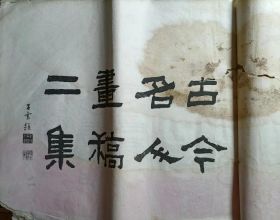 古今
名人
畫稿
二集